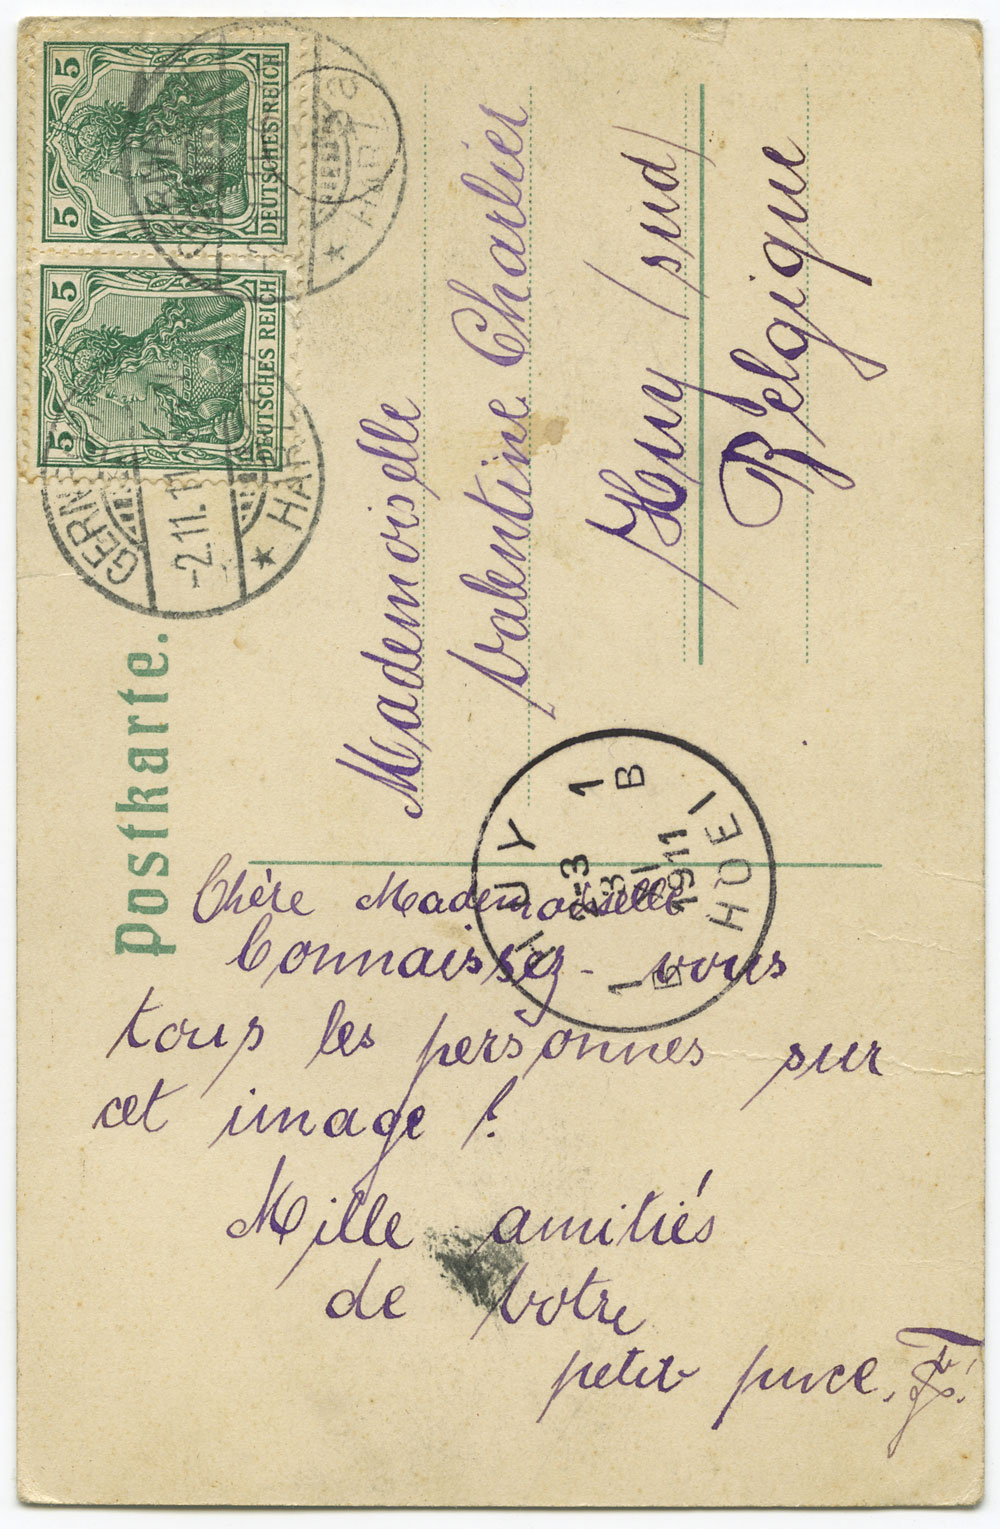 5 5
DEUTSCHES REICH
5 5
DEUTSCHES REICH
-2.11.11
* HARZ
Postkarte.
Mademoiselle
Valentine Charlier
Huy (sud)
Belgique
HUY 1
B
2-3
3 XI
1911
1
B
HOEI
Chère Mademoiselle
Connaissez-vous
tous les personnes sur
cet image?
Mille amitiés
de votre
petit puce.